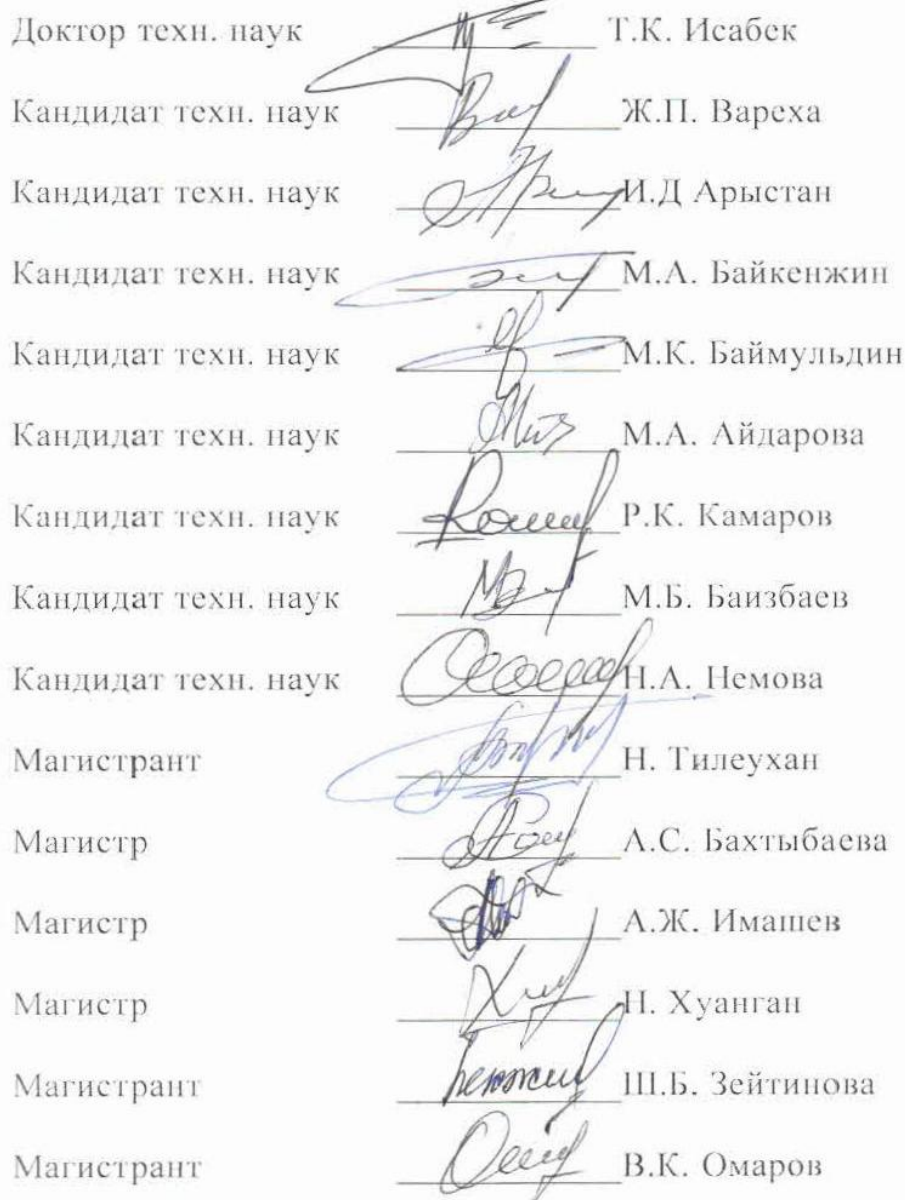 Доктор техн. наук Т.К. Исабек
Кандидат техн. наук Ж.П. Вареха
Кандидат техн. наук И.Д Арыстан
Кандидат техн. наук М.А. Байкенжин
Кандидат техн. наук М.К. Баймульдин
Кандидат техн. наук М.А. Айдарова
Кандидат техн. наук Р.К. Камаров
Кандидат техн. наук М.Б. Баизбаев
Кандидат техн. наук Н.А. Немова
Магистрант Н. Тилеухан
Магистр А.С. Бахтыбаева
Магистр А.Ж. Имашев
Магистр Н. Хуанган
Магистрант Ш.Б. Зейтинова
Магистрант В.К. Омаров